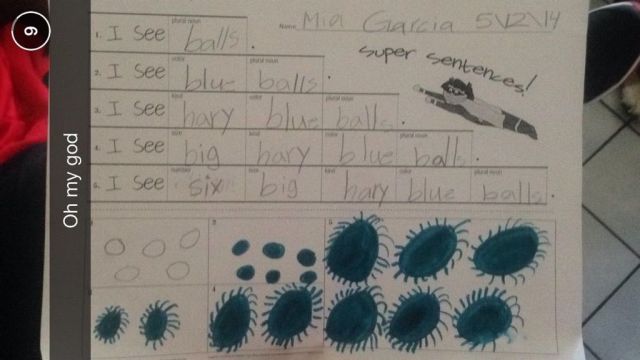 9
Oh my god
Name Mia Garcia 5\12\14
super sentences!
plural noun
1. I see balls.
color plural noun
2. I see blue balls.
kind color plural noun
3. I see hary blue balls.
size kind color plural noun
4. I see big hary blue balls.
number size kind color plural noun
5. I see six big hary blue balls.
1
2
5
3
4